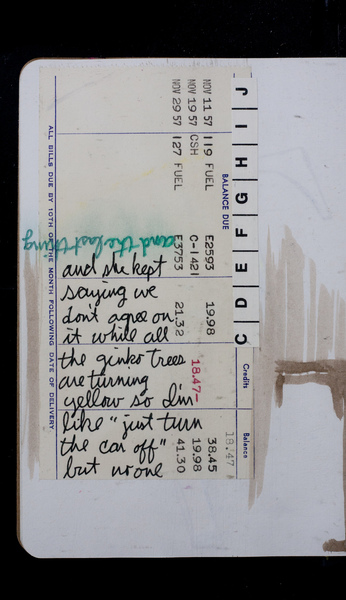 J I H G F E D C
BALANCE DUE
Credits
Balance
18.47
NOV 11 57 119 FUEL E2593 19.98 38.45
NOV 19 57 CSH C-1421 18.47- 19.98
NOV 29 57 127 FUEL E3753 21.32 41.30
ALL BILLS DUE BY 10TH OF THE MONTH FOLLOWING DATE OF DELIVERY
and the last thing
and she kept
saying we
don't agree on
it while all
the ginko trees
are turning
yellow so I'm
like "just turn
the car off"
but no one